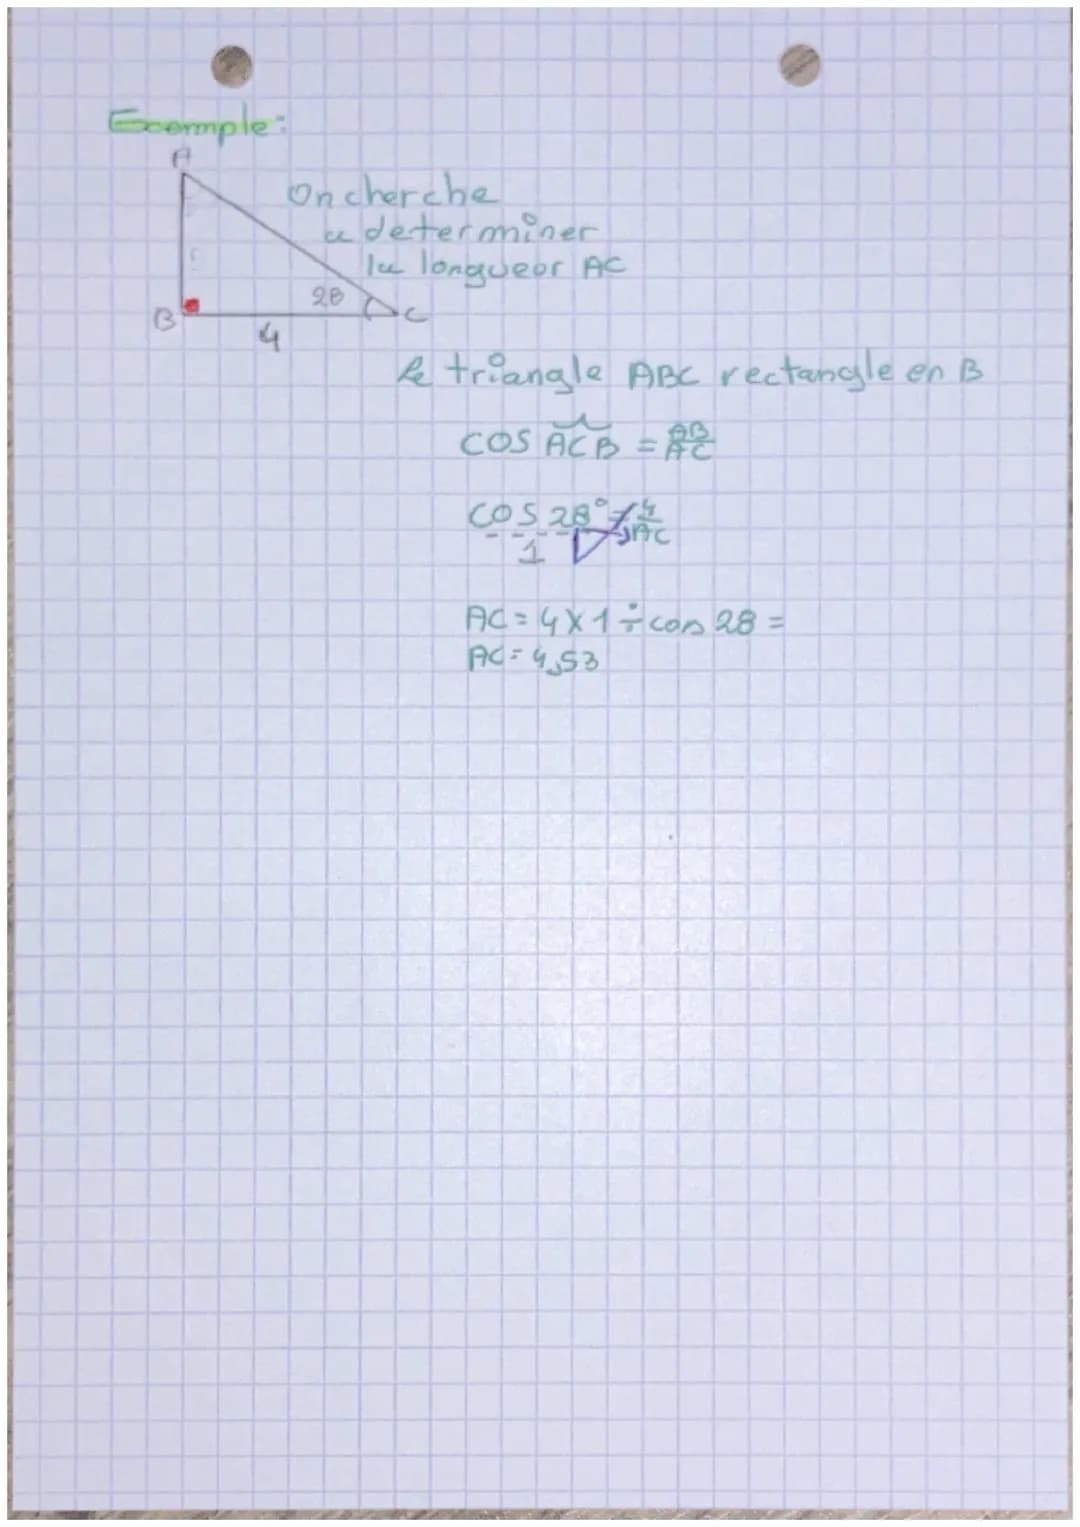 Exemple:
A
On cherche
a determiner
la longueor AC
28
B
C
4
le triangle ABC rectangle en B
COS ACB = AB/AC
COS 28° = 4/AC
1
AC = 4 X 1 ÷ cos 28 =
AC = 4,53